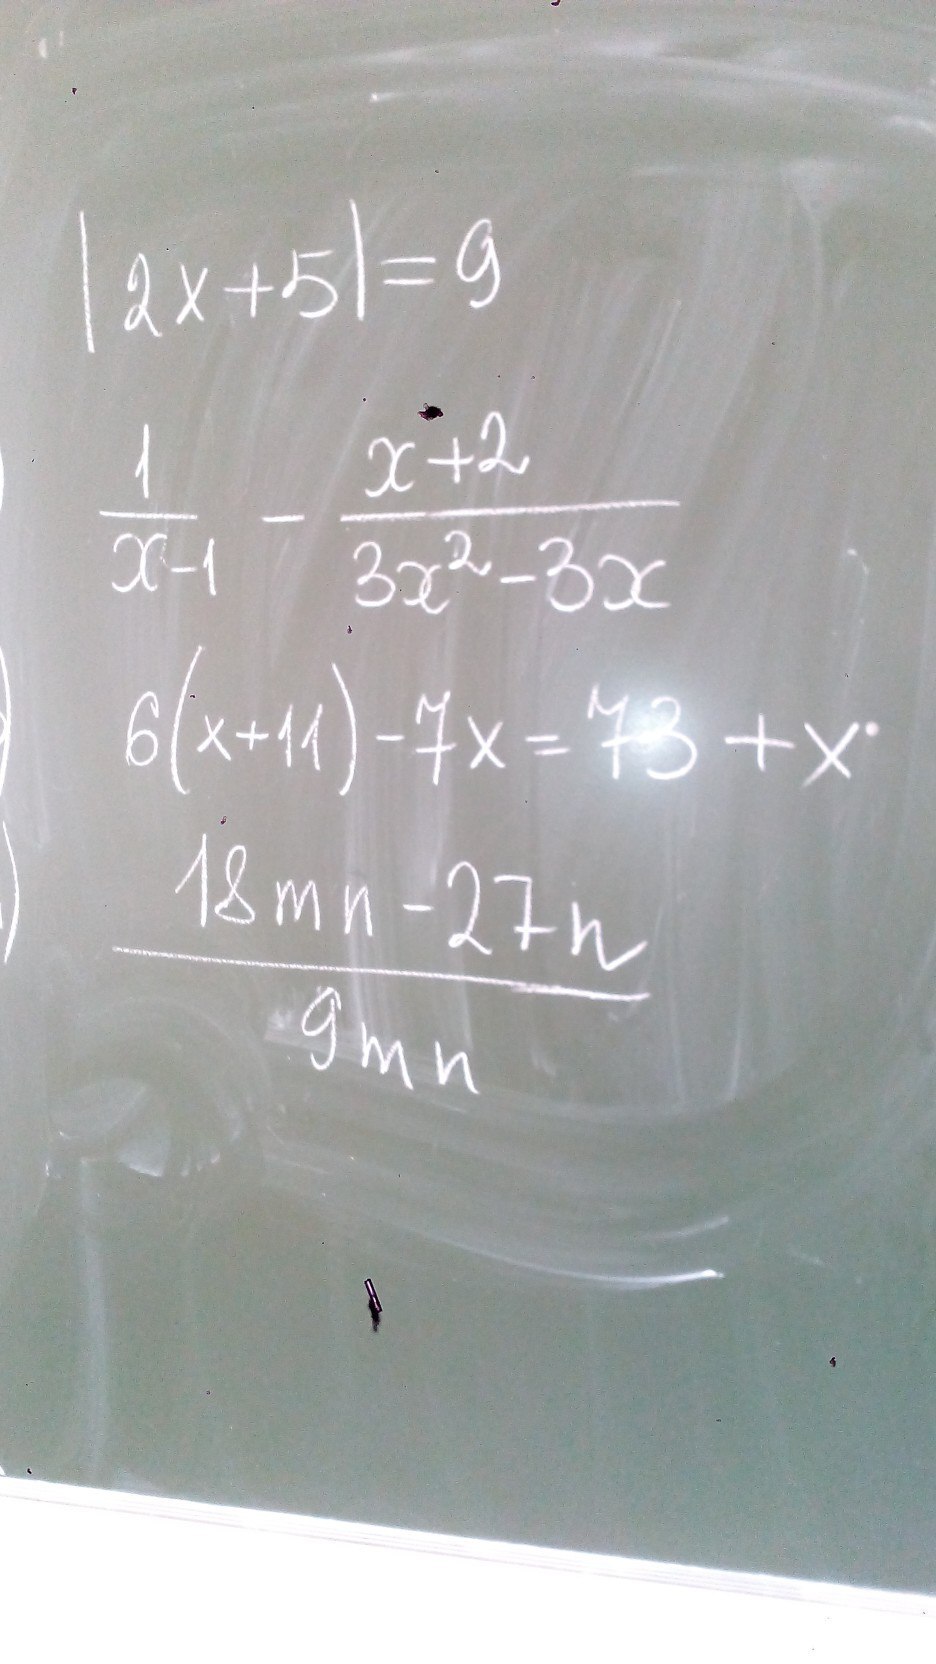 |2x+5|=9
1/(x-1) - (x+2)/(3x²-3x)
6(x+11)-7x=73+x
(18mn-27n)/(9mn)